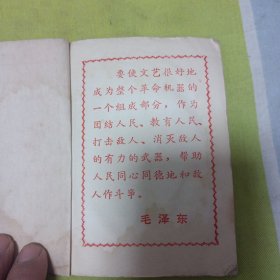 要使文艺很好地
成为整个革命机器的
一个组成部分，作为
团结人民、教育人民、
打击敌人、消灭敌人
的有力的武器，帮助
人民同心同德地和敌
人作斗争。
毛泽东